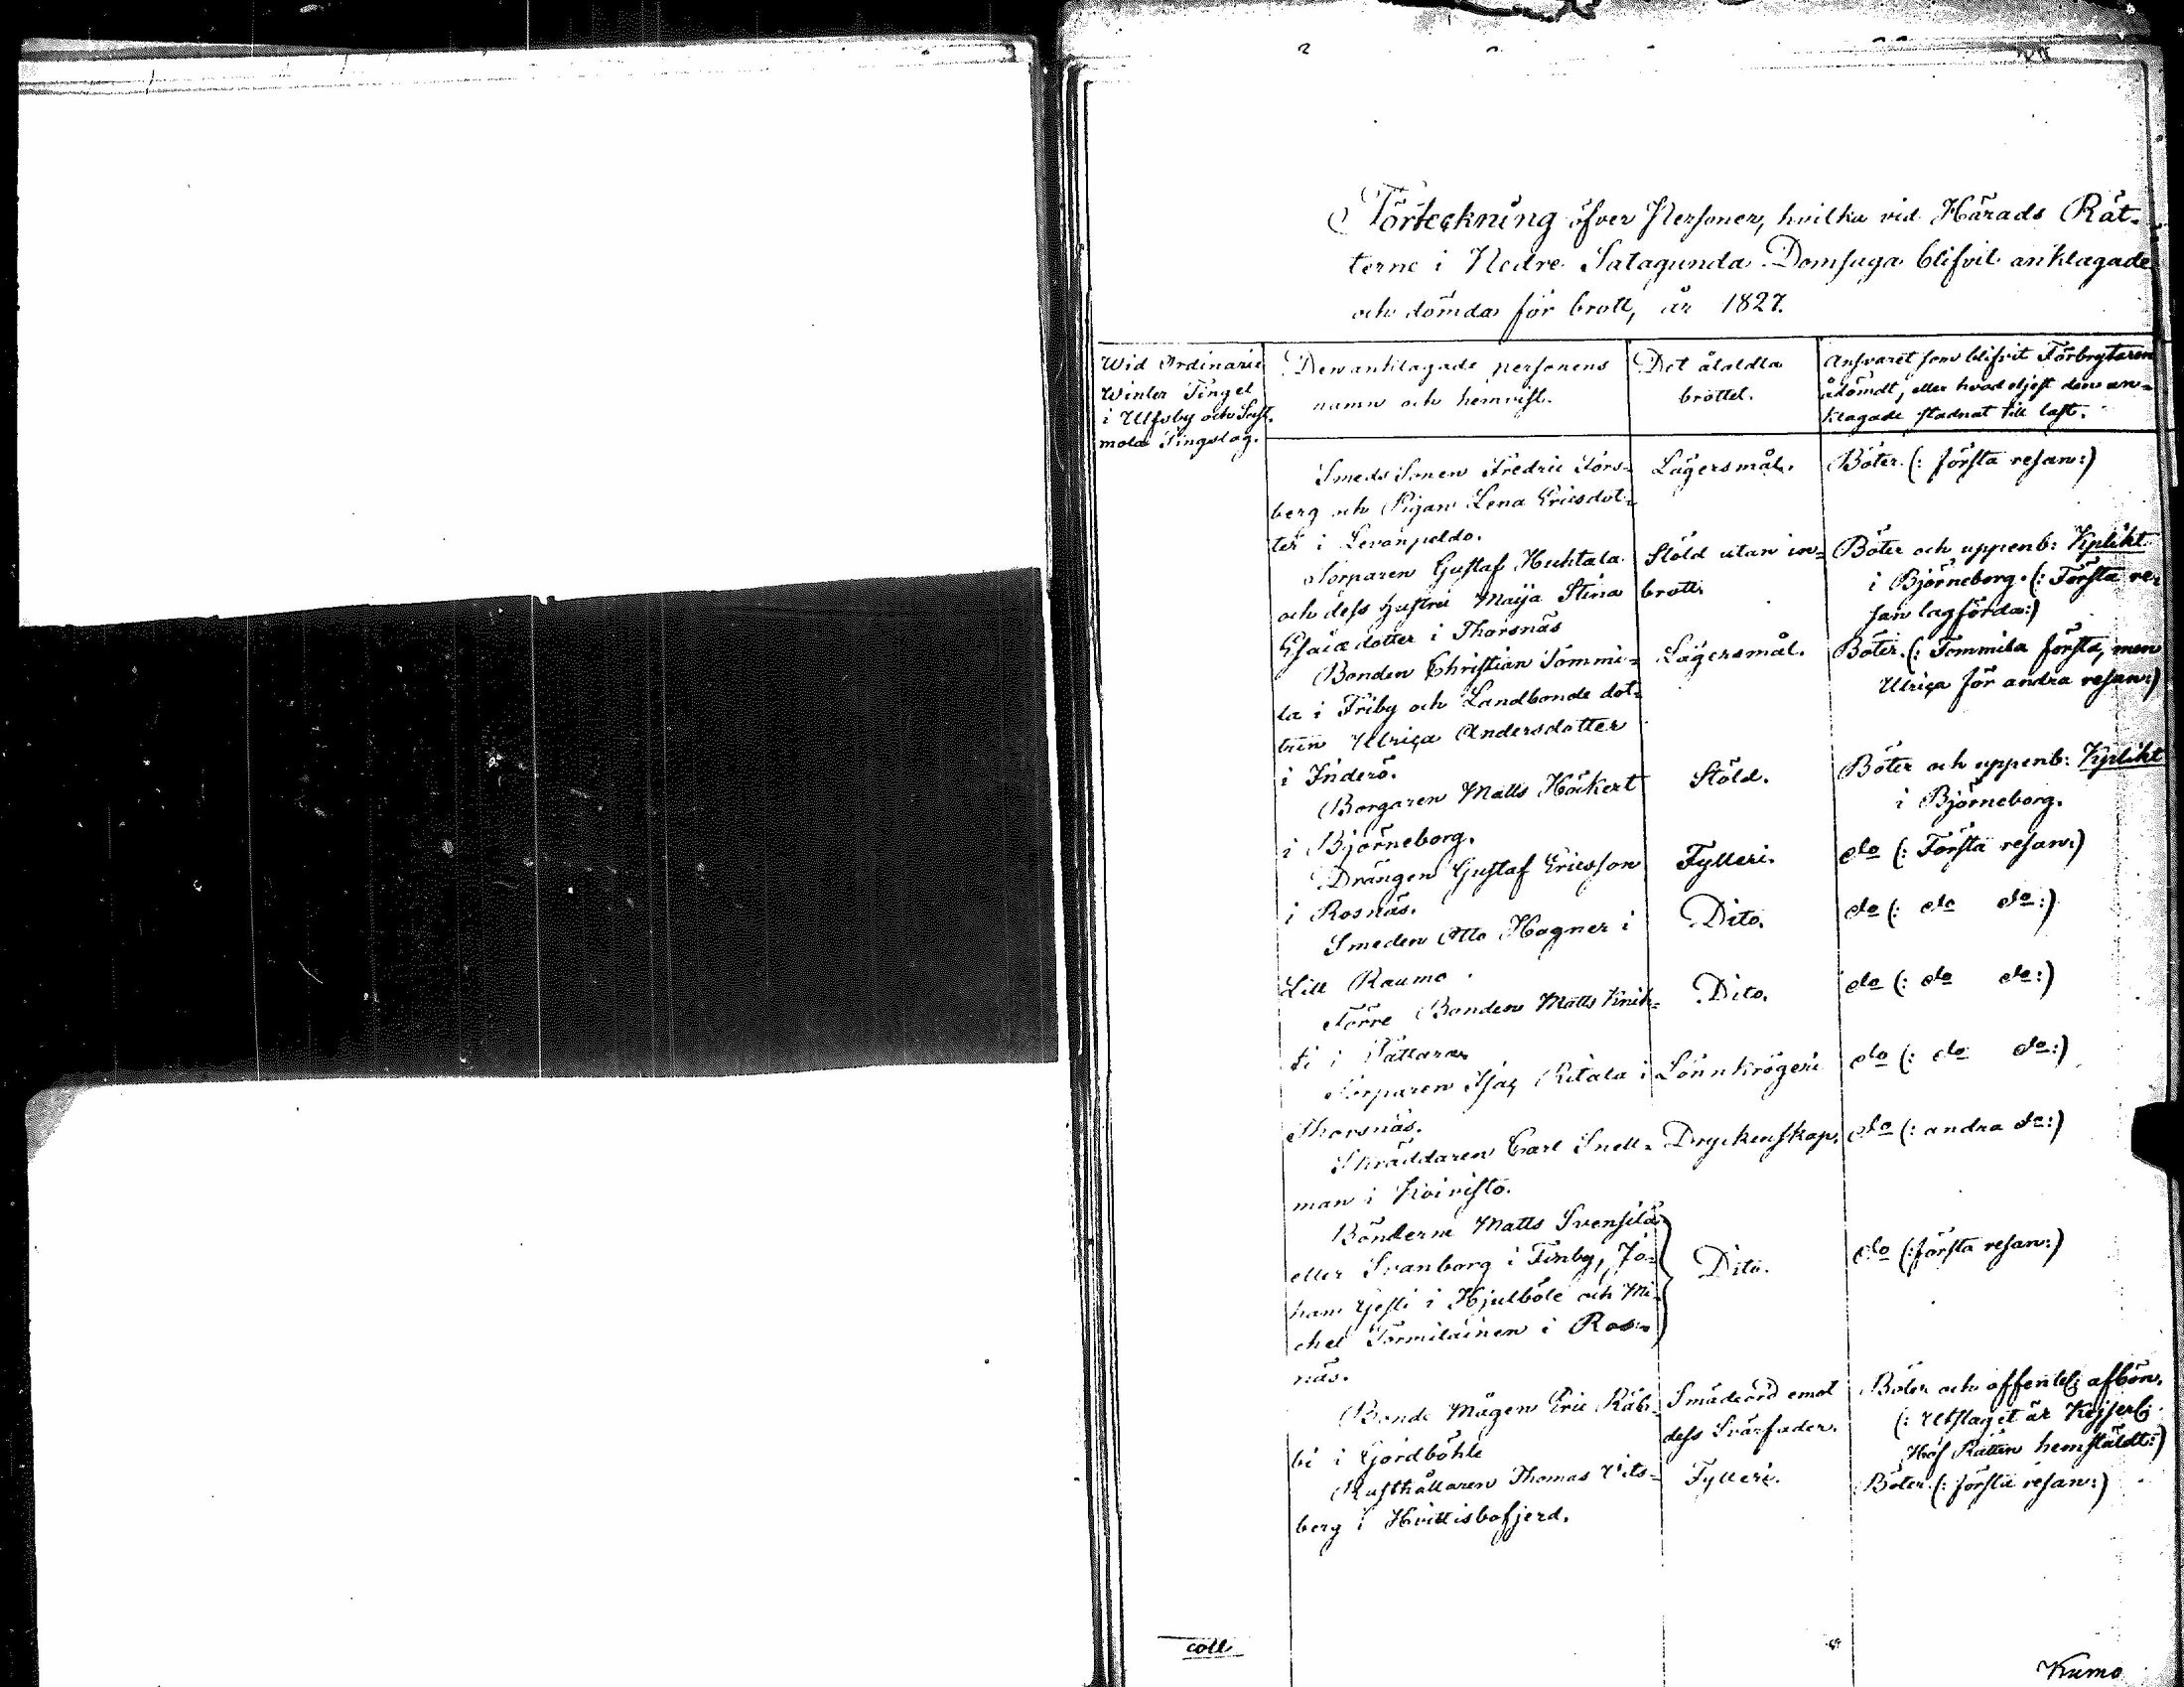 Förteckning öfver Personer, hvilka vid Härads Rät-
terne i Nedre Satagunda Domsaga blifvit anklagade
och dömda för brott, år 1827.
Wid Ordinarie
Winter Tinget
i Ulfsby och Sast-
mola Tingslag.
Den anklagade personens
namn och hemvist.
Det åtaldta
brottet.
Ansvaret som blifvit Förbrytaren
ådömdt, eller hvad eljest den an-
klagade stadnat till last.
Smeds Sonen Fredric Fors-
berg och Pigan Lena Ericsdot-
ter i Levanpeldo.
Lägersmål.
Böter. (: första resan:)
Torparen Gustaf Huhtala
och dess hustru Maija Stina
Esaiæ dotter i Thorsnäs
Stöld utan in-
brott.
Böter och uppenb: Kplikt
i Björneborg. (: Första re-
san lagförda:)
Bonden Christian Tommi-
la i Friby och Landbonde dot-
tren Ulrica Andersdotter
i Inderö.
Lägersmål.
Böter. (: Tommila första, men
Ulrica för andra resan:)
Borgaren Matts Höckert
i Björneborg.
Stöld.
Böter och uppenb: Kplikt
i Björneborg.
Drängen Gustaf Ericsson
i Rosnäs.
Fylleri.
do (: Första resan:)
Smeden Otto Hagner i
Lill Raumo.
Dito.
do (: do do:)
Förre Bonden Matts Knih-
ti i Pättarar
Dito.
do (: do do:)
Torparen Isac Ritala i
Thorsnäs.
Lönnkrögeri
do (: do do:)
Skräddaren Carl Snell-
man i Koivisto.
Dryckenskap.
do (: andra do:)
Bönderne Matts Svensilä
eller Svanborg i Finby, Jo-
han Gesti i Hjulböle och Mi-
chel Tormiläinen i Ros-
näs.
Dito.
do (:första resan:)
Bonde Mågen Eric Räb-
bi i Gjördböhle
Smädeord emot
dess Svärfader.
Böter och offentlig afbön.
(: Utslaget är Kejserl:
Hof Rätten hemstäldt:)
Rusthållaren Thomas Vits-
berg i Hvittisbofjerd.
Fylleri.
Böter. (: första resan:)
coll
Kumo